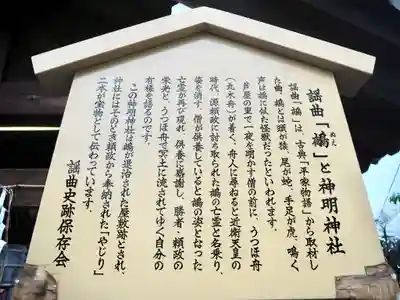 謡曲「鵺」と神明神社
ぬえ
謡曲「鵺」は、古典「平家物語」から取材し
た曲。鵺とは頭が猿、尾が蛇、手足が虎、鳴く
声は鵺に似た怪獣だったといわれます。
芦屋の里で一夜を明かす僧の前に、うつほ舟
(丸木舟)が着く。舟人に尋ねると近衛天皇の
時代、源頼政に討ち取られた鵺の亡霊と名乗り、
姿を消す。僧が供養していると鵺の姿となった
亡霊が再び現れ、供養に感謝し、勝者・頼政の
栄光と、うつほ舟で冥土に流されてゆく自分の
有様を語るのです。
この神明神社は鵺が退治された屋敷跡とされ、
神社にはそのとき頼政から奉納された「やじり」
二本が宝物として伝わっています。
謡曲史跡保存会